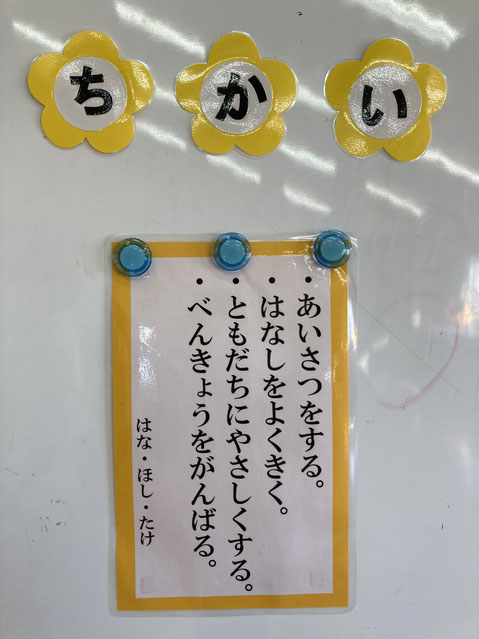 ちかい
・あいさつをする。
・はなしをよくきく。
・ともだちにやさしくする。
・べんきょうをがんばる。
はな・ほし・たけ